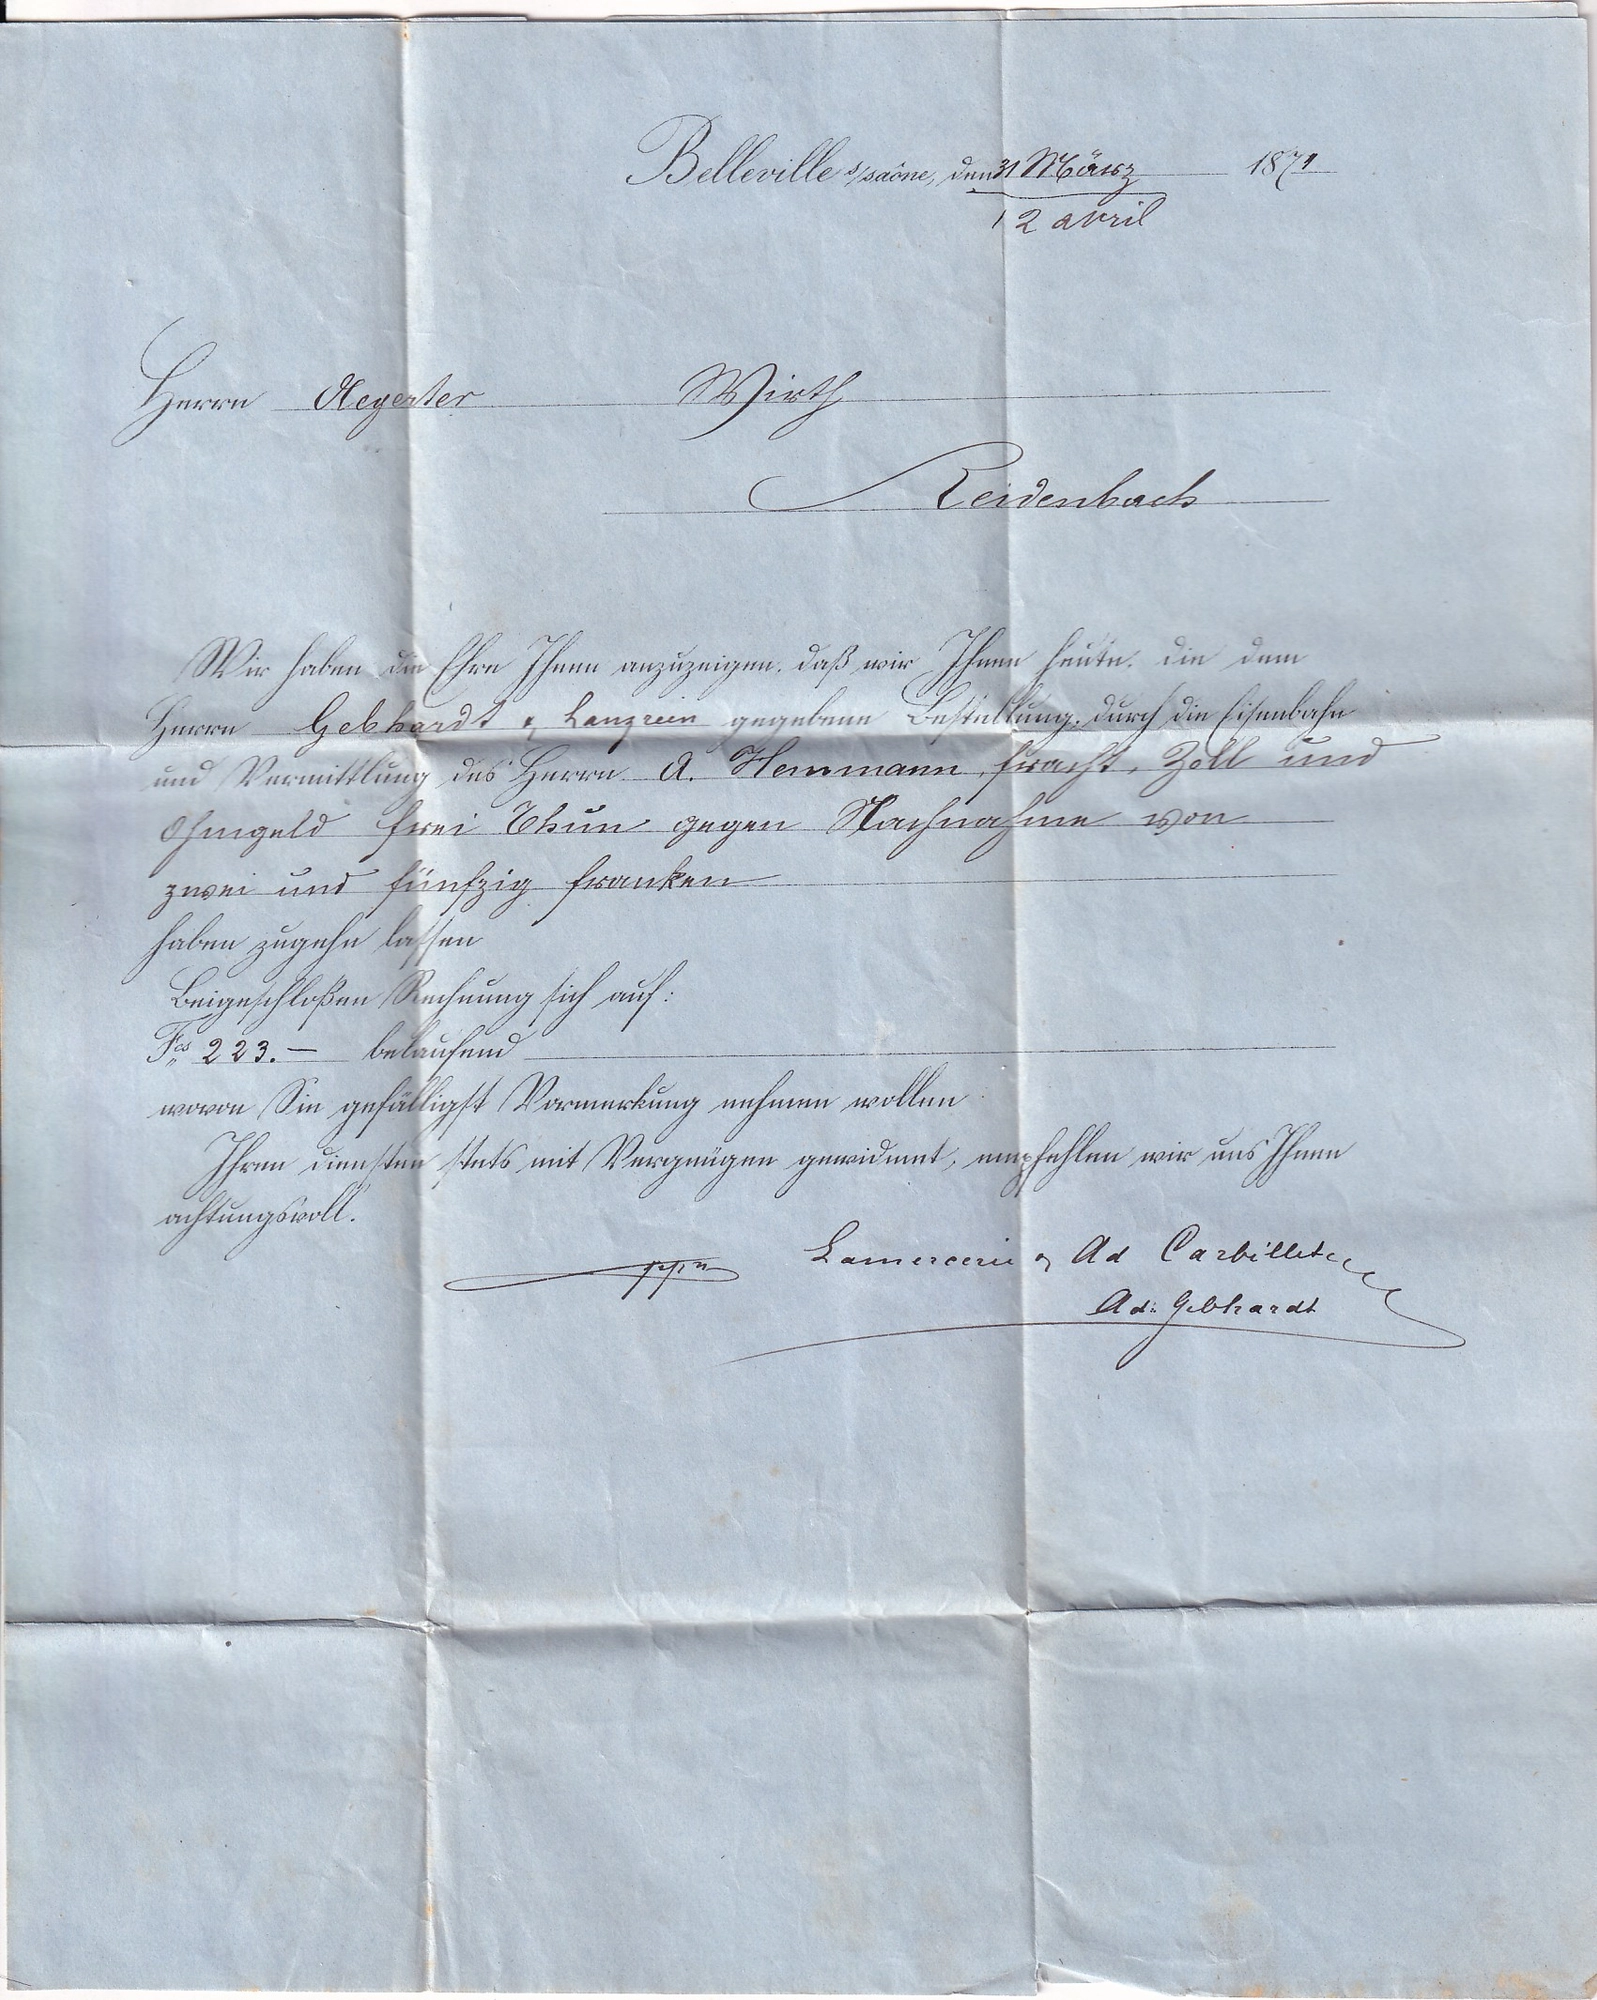 Belleville s/saône, den 31 März 1871
12 avril
Herrn Aegerter Wirth
Reidenbach
Wir haben die Ehre Ihnen anzuzeigen, daß wir Ihnen heute, die dem
Herrn Gebhardt & Lanzrein gegebene Bestellung, durch die Eisenbahn
und Vermittlung des Herrn A. Hemmann, fracht, Zoll und
Ohmgeld frei Thun gegen Nachnahme von
zwei und fünfzig franken
haben zugehn lassen
Beigeschloßen Rechnung sich auf:
Fcs 223.— belaufend
wovon Sie gefälligst Vormerkung nehmen wollen
Ihren diensten stets mit Vergnügen gewidmet, empfehlen wir uns Ihnen
achtungsvoll.
Lamercerie & Ad Carbillet
Ad: Gebhardt